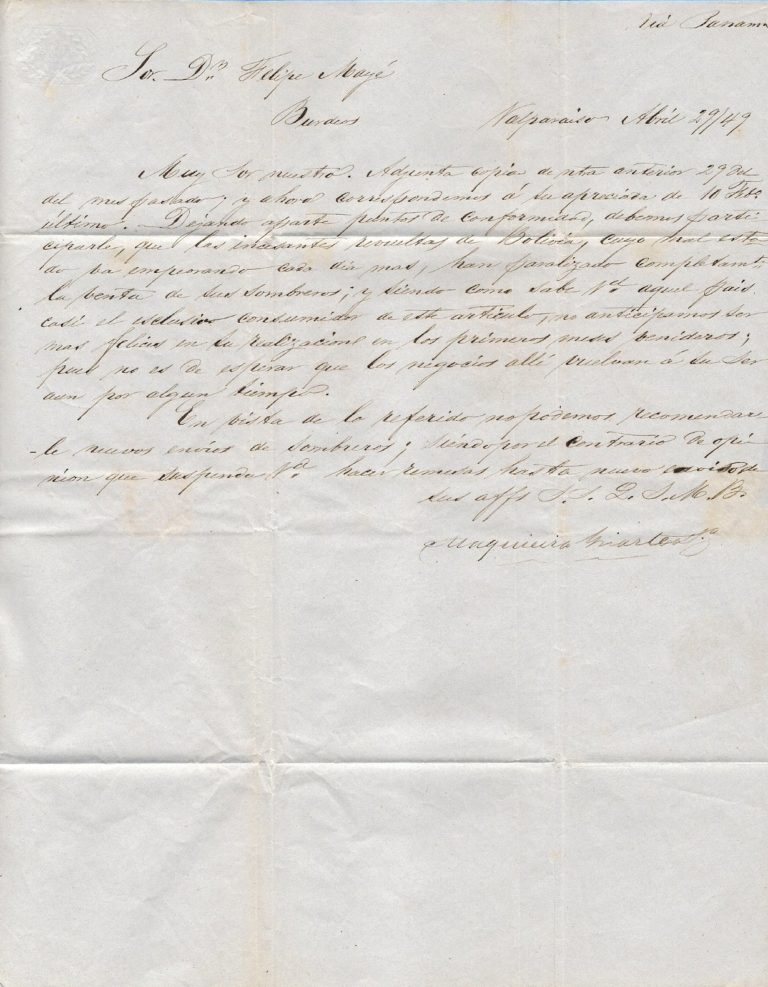 Via Panama
Sor. Dn. Felipe Mayé
Burdeos Valparaiso Abril 29/49
Muy Sor nuestro. Adjunta copia de nta anterior 29
del mes pasado, y ahora correspondemos á su apreciada de 10
último. Dejando aparte puntos de conformidad, debemos parti-
ciparle, que las incesantes revueltas de Bolivia, cuyo mal esta
do va empeorando cada dia mas, han paralizado completamte
la venta de sus sombreros; y siendo como sabe Vd. aquel pais
casi el esclusivo consumidor de este articulo, no anticipamos ser
mas felices en su realizacion en los primeros meses venideros;
pues no es de esperar que los negocios allí vuelvan á su ser
aun por algun tiempo.
En vista de lo referido no podemos recomendar
-le nuevos envios de sombreros; siendo por el contrario de opi
nion que suspenda Vd. hacer remesas hasta nuevo aviso de
sus affs S. S. Q. S. M. B.